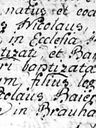 natus et coa
Nicolaus,
in Ecclesia
tizat. et Ba
ri baptizata
um, filius le
olaus Baier
in Brauha